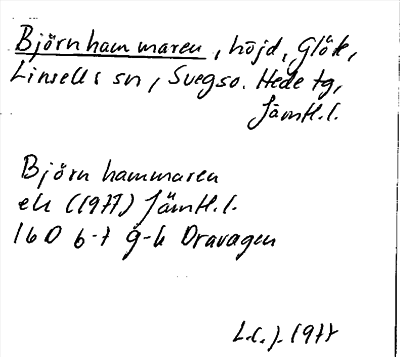 Björnhammaren, höjd, Glöte,
Linsells sn, Svegs o. Hede tg,
Jämtl.l.
Björnhammaren
ek (1977) Jämtl.l.
16D 6-7 g-h Dravagen
L.C.J. 1977